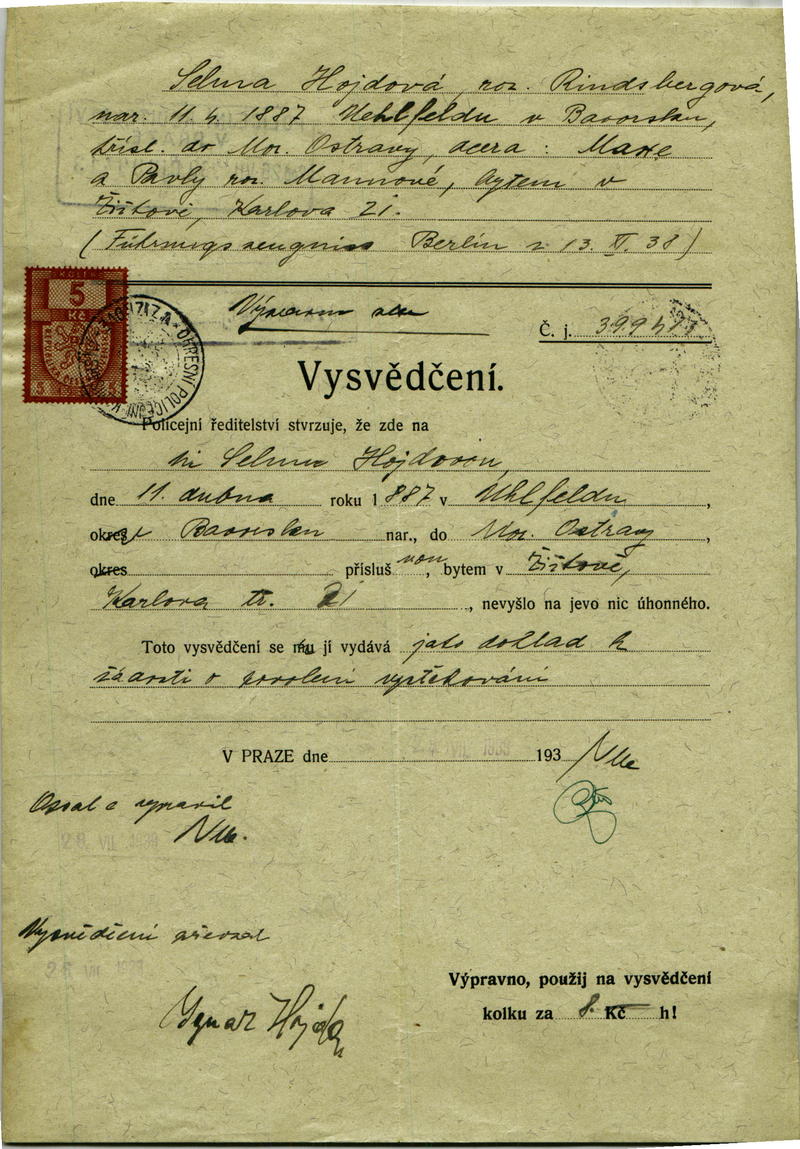 Selma Hojdová, roz. Rindsbergová,
nar. 11. 4. 1887 Uehlfeldu v Bavorsku,
přísl. do Mor. Ostravy, dcera : Maxe
a Pavly roz. Mannové, bytem v
Karlova 21.
(Führungszeugniss Berlin z 13. 38)
KOLEK
5
Kč
5 5
OKRESNÍ POLICEJNÍ
Č. j. 39947
Vysvědčení.
Policejní ředitelství stvrzuje, že zde na
ni Selmu Hojdovou
dne 11. dubna roku 1887 v Uhlfeldu,
okres Bavorsku nar., do Mor. Ostravy,
okres přísluš nou, bytem v
Karlova tř. 21, nevyšlo na jevo nic úhonného.
Toto vysvědčení se mu jí vydává jako doklad k
žádosti o povolení vystěhování
V PRAZE dne 193
Opsal a vypravil
28. VII. 1939
Vysvědčení převzal
28 VII. 1939
Výpravno, použij na vysvědčení
kolku za 8. Kč h!
Ignaz Hojda